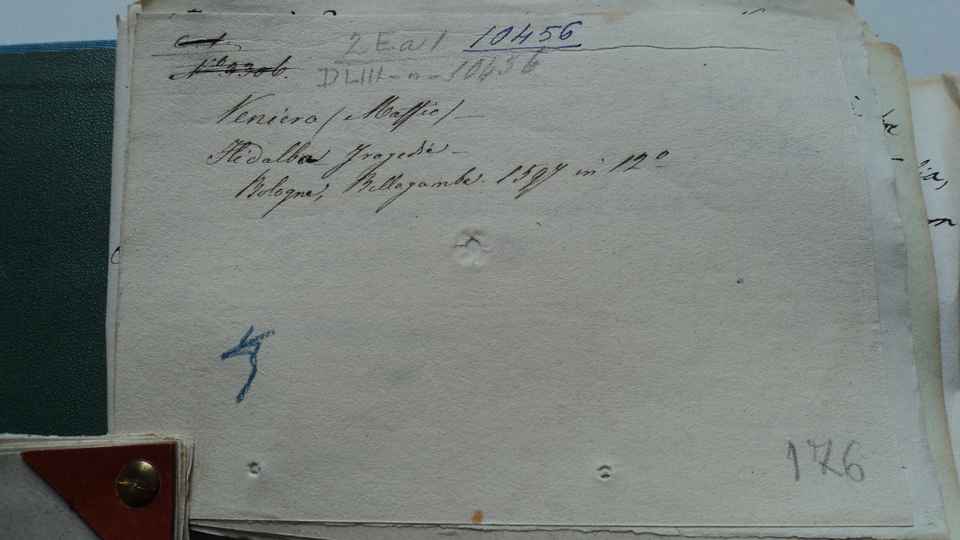 2 E a 1 10456
N° 2306.
DLIII-n-10456
Veniero (Maffio) —
Hidalba Tragedie —
Bologne, Bellagambe. 1597 in 12°
176